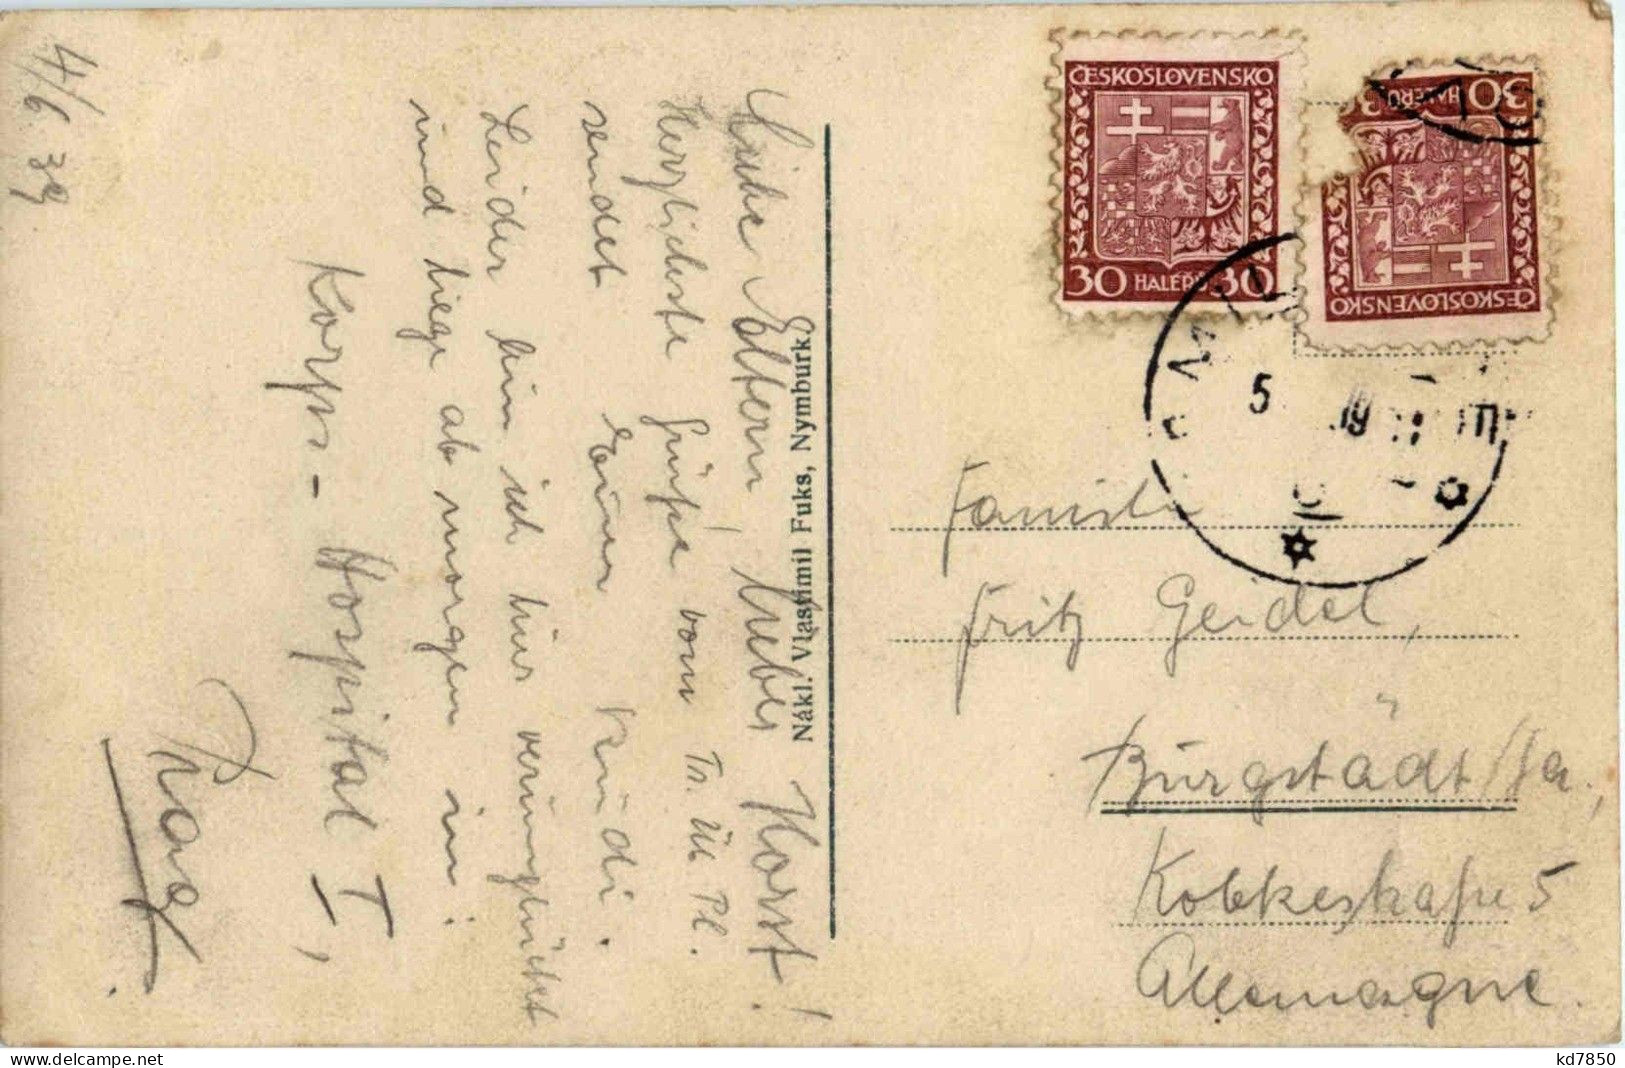 4/6. 39
Liebe Eltern, lieber Horst!
Herzlichste Grüße vom Tr. Üb. Pl.
sendet Euer Rudi.
Leider bin ich hier verunglückt
und liege ab morgen im
Korps-Hospital I,
Prag.
Nákl. Vlastimil Fuks, Nymburk.
ČESKOSLOVENSKO
30 HALÉŘŮ 30
30 HALÉŘŮ 30
ČESKOSLOVENSKO
5
Familie
Fritz Geidel,
Burgstädt/Sa.,
5
Allemagne.
delcampe.net
kd7850